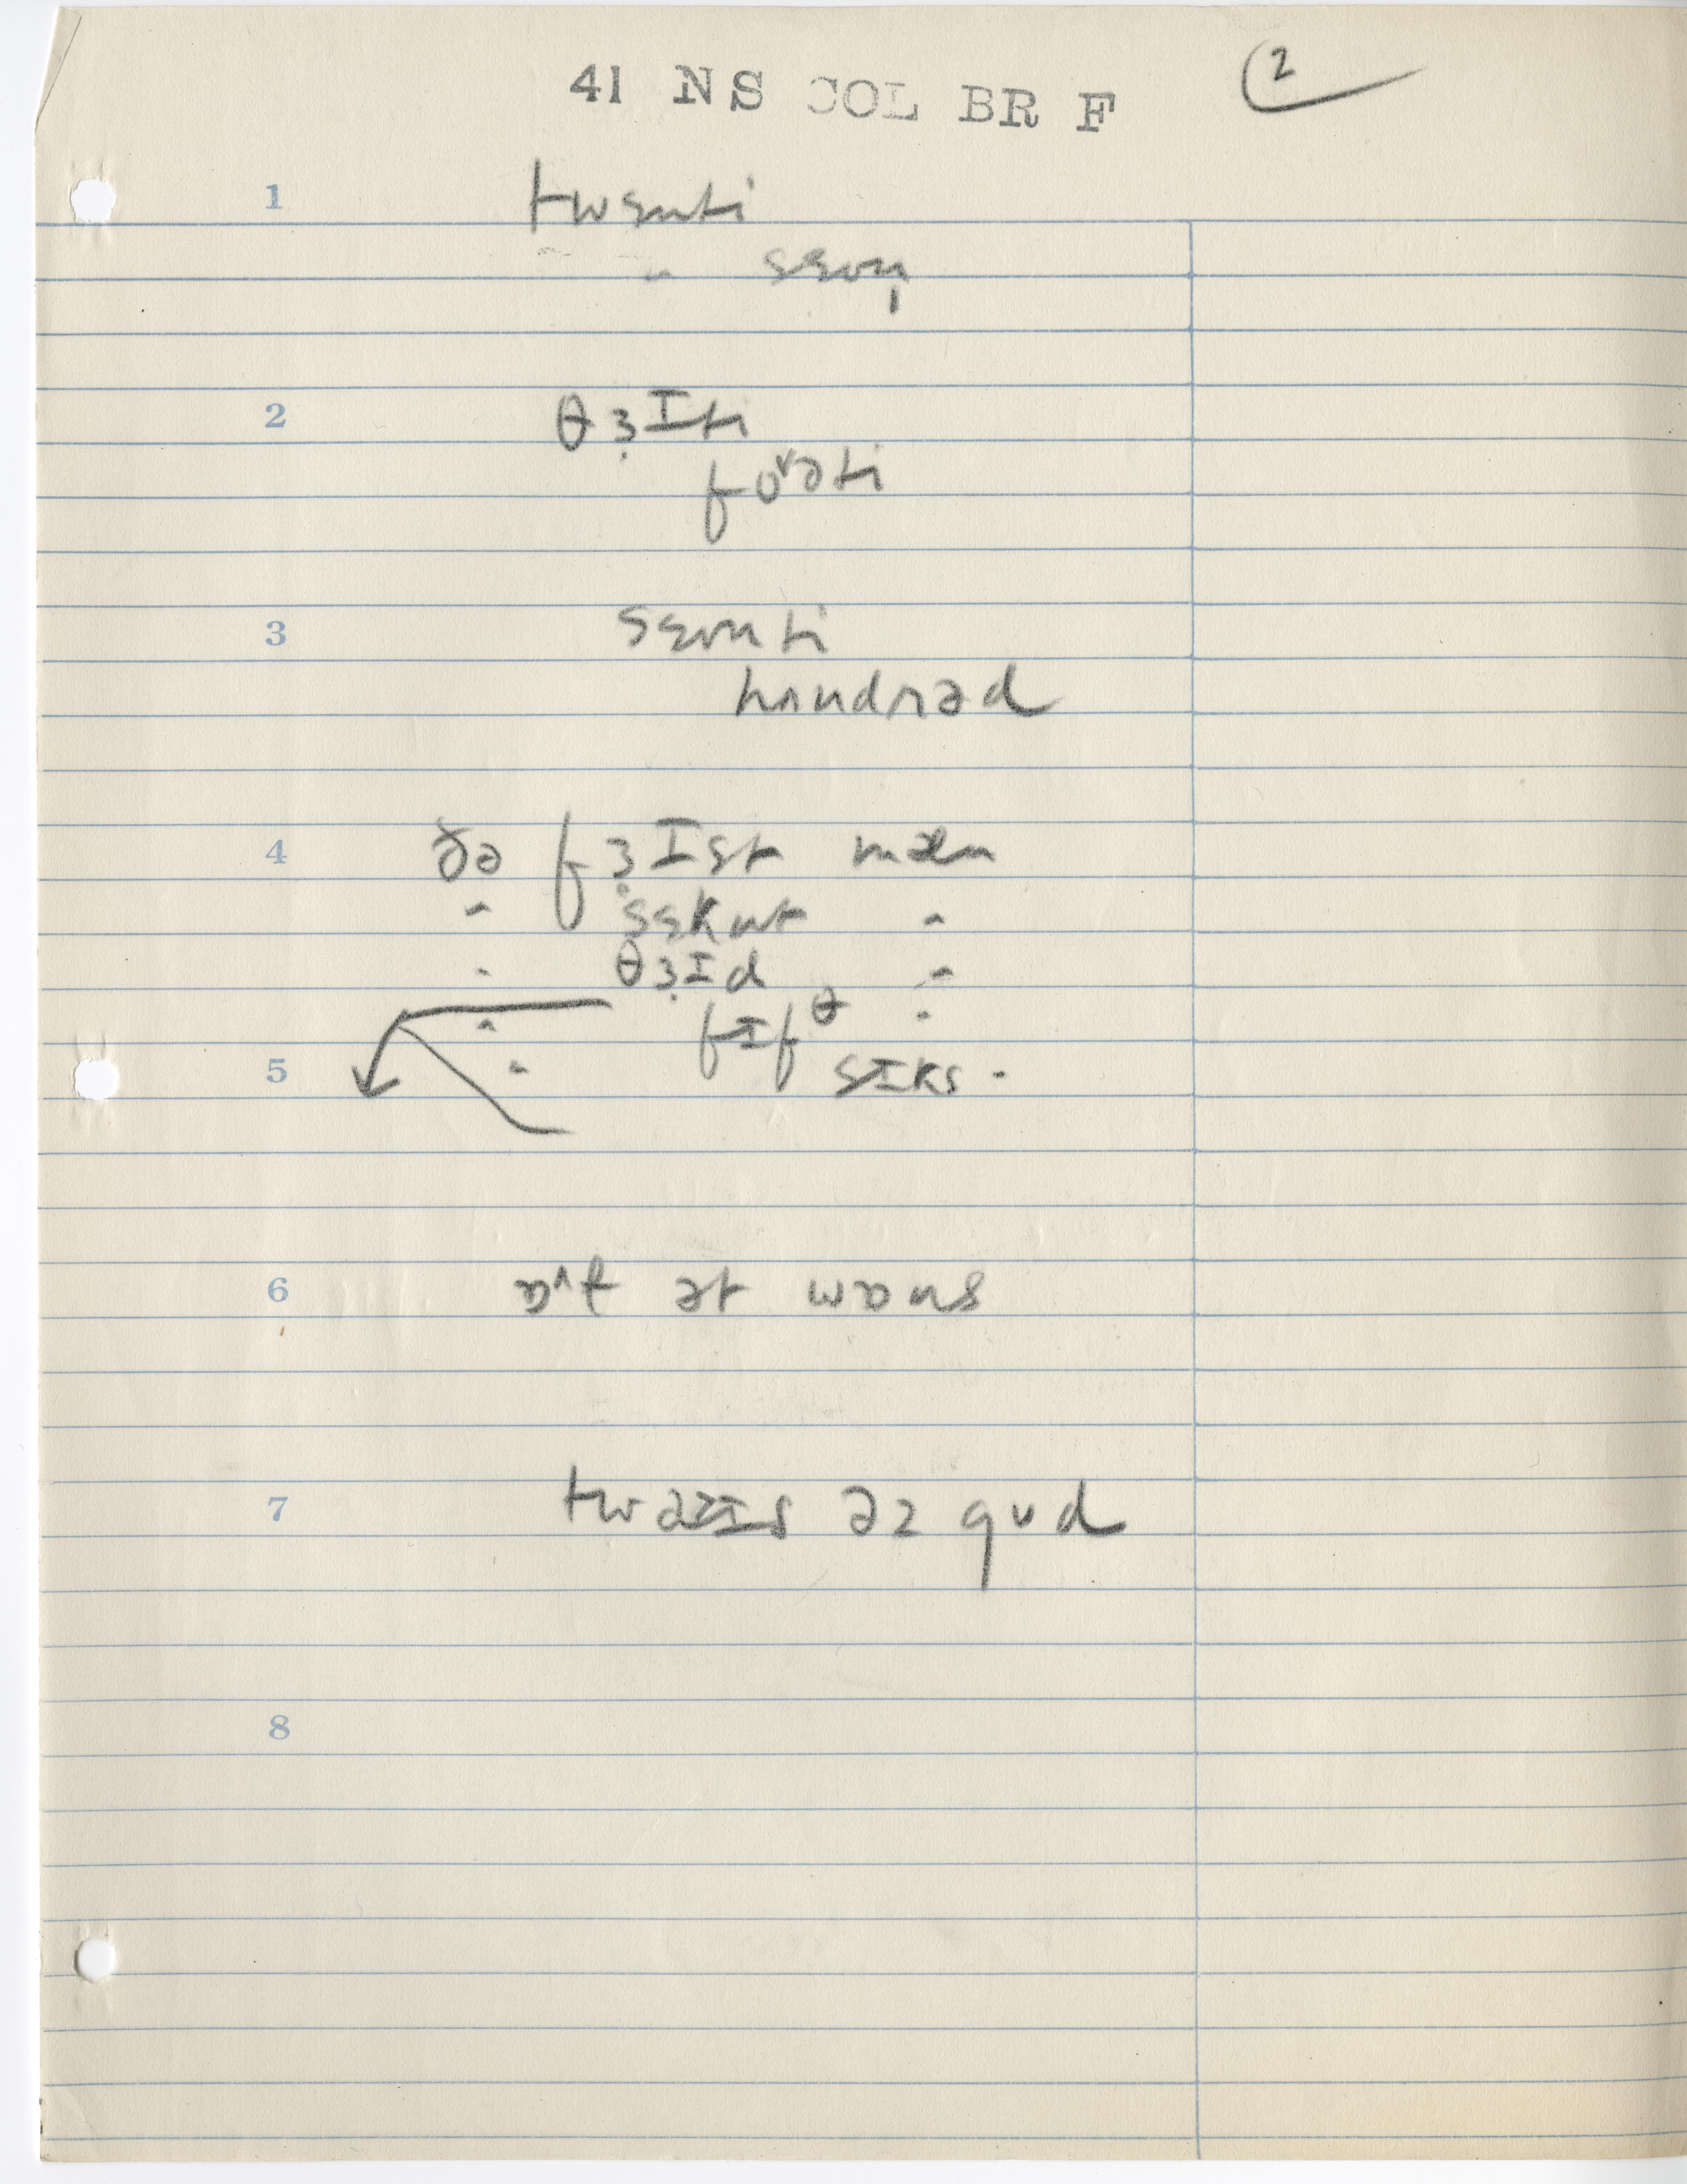 41 NS COL BR F
2
1 twɛnti
" sɛvn̩
2 θɜ̣ɪti
fo˅əti
3 sɛvnti
hʌndrəd
4 ðə fɜ̣ɪst mæn
" sɛknt "
" θɜ̣ɪd "
" fɪfθ "
5 " sɪks "
6 ɒ˄ɫ ət wɒns
7 twəɪɪs əz gud
8